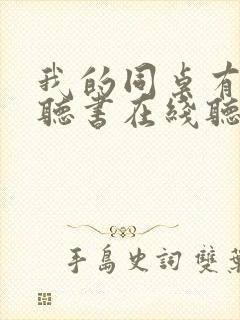 我的同桌有
聽書在綫聽
手島史詞 雙葉